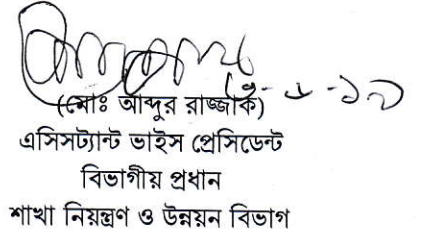 (মোঃ আব্দুর রাজ্জাক)
এসিসট্যান্ট ভাইস প্রেসিডেন্ট
বিভাগীয় প্রধান
শাখা নিয়ন্ত্রণ ও উন্নয়ন বিভাগ